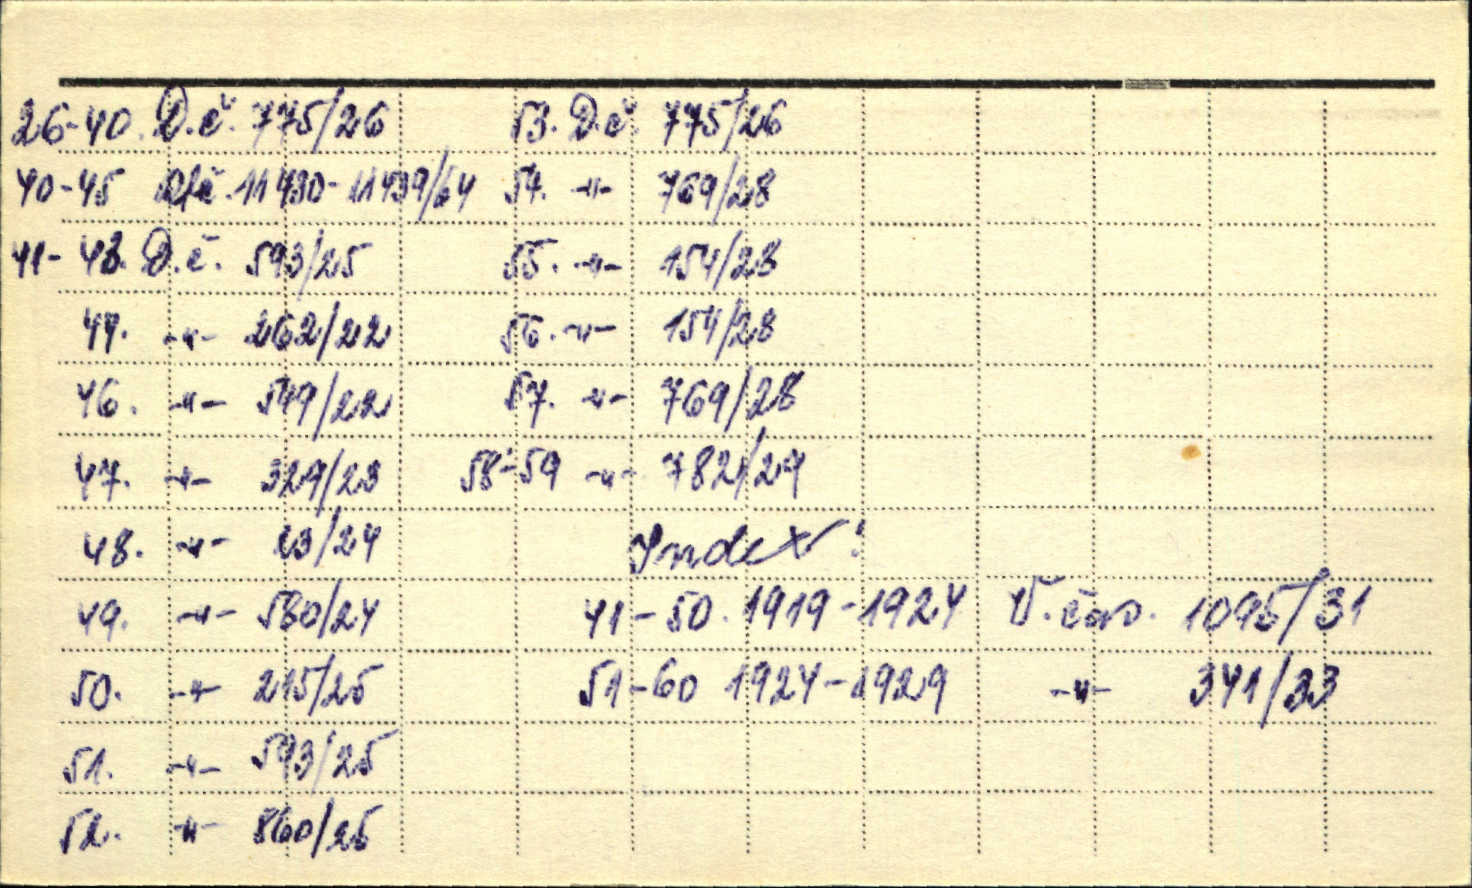 26-40. D.č. 775/26
40-45 11430-11439/54
41-43. D.č. 593/25
44. -"- 262/22
46. -"- 549/22
47. -"- 329/23
48. -"- 13/24
49. -"- 580/24
50. -"- 215/25
51. -"- 593/25
52. -"- 860/25
53. D.č. 775/26
54. -"- 769/28
55. -"- 154/28
56. -"- 154/28
57. -"- 769/28
58-59 -"- 782/29
Index:
41-50. 1919-1924 V. čas. 1095/31
51-60 1924-1929 -"- 341/33